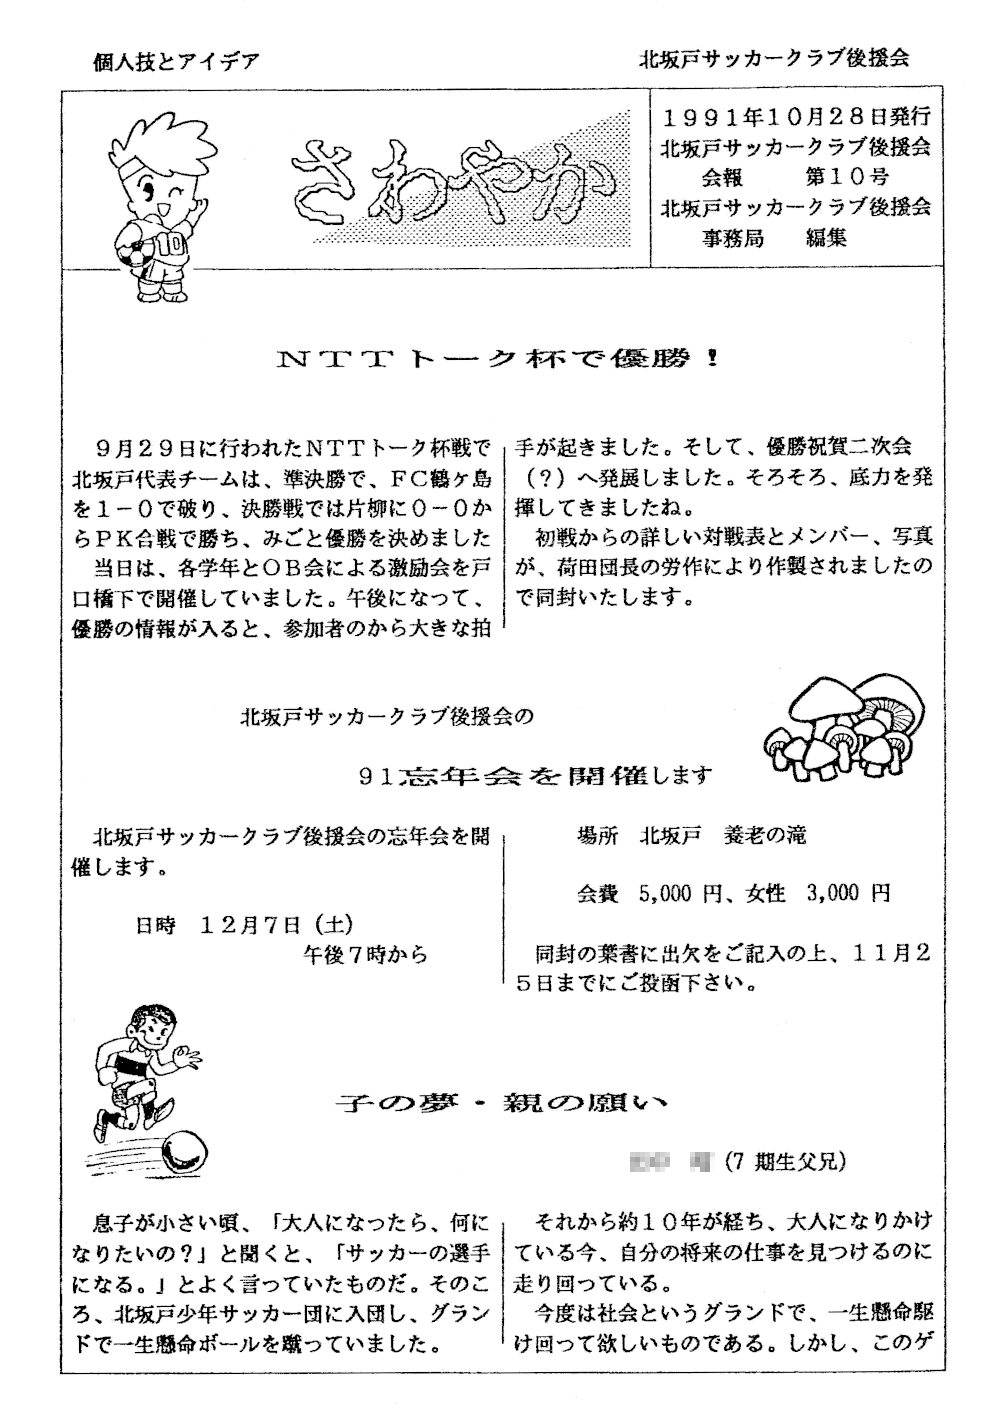 個人技とアイデア
北坂戸サッカークラブ後援会
さわやか
１９９１年１０月２８日発行
北坂戸サッカークラブ後援会
会報　　　第１０号
北坂戸サッカークラブ後援会
事務局　　編集
10
ＮＴＴトーク杯で優勝！
９月２９日に行われたＮＴＴトーク杯戦で
北坂戸代表チームは、準決勝で、ＦＣ鶴ケ島
を１－０で破り、決勝戦では片柳に０－０か
らＰＫ合戦で勝ち、みごと優勝を決めました
当日は、各学年とＯＢ会による激励会を戸
口橋下で開催していました。午後になって、
優勝の情報が入ると、参加者のから大きな拍
手が起きました。そして、優勝祝賀二次会
（？）へ発展しました。そろそろ、底力を発
揮してきましたね。
初戦からの詳しい対戦表とメンバー、写真
が、荷田団長の労作により作製されましたの
で同封いたします。
北坂戸サッカークラブ後援会の
９１忘年会を開催します
北坂戸サッカークラブ後援会の忘年会を開
催します。
日時　１２月７日（土）
午後７時から
場所　北坂戸　養老の滝
会費　5,000 円、女性　3,000 円
同封の葉書に出欠をご記入の上、１１月２
５日までにご投函下さい。
子の夢・親の願い
（7 期生父兄）
息子が小さい頃、「大人になったら、何に
なりたいの？」と聞くと、「サッカーの選手
になる。」とよく言っていたものだ。そのこ
ろ、北坂戸少年サッカー団に入団し、グラン
ドで一生懸命ボールを蹴っていました。
それから約１０年が経ち、大人になりかけ
ている今、自分の将来の仕事を見つけるのに
走り回っている。
今度は社会というグランドで、一生懸命駆
け回って欲しいものである。しかし、このゲ